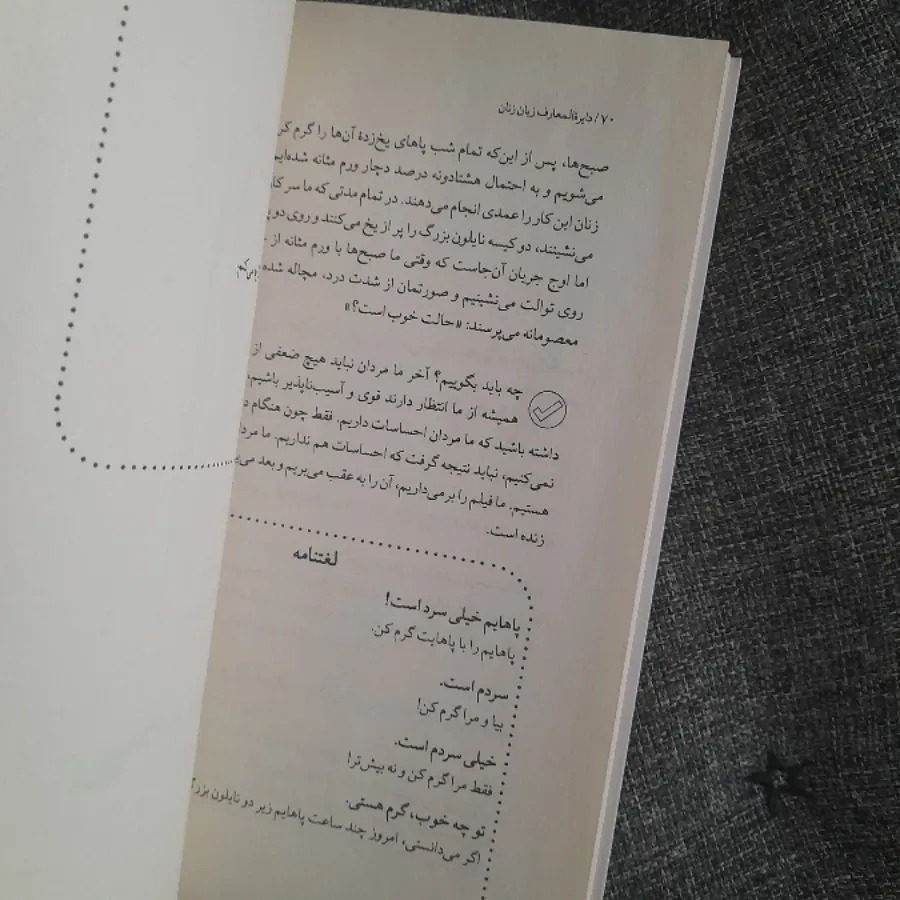 ۷۰ / دایرةالمعارف زبان زنان
صبح‌ها، پس از این‌که تمام شب پاهای یخ‌زدهٔ آن‌ها را گرم کر
می‌شویم و به احتمال هشتادونه درصد دچار ورم مثانه شده‌ایم
زنان این کار را عمدی انجام می‌دهند. در تمام مدتی که ما سر کا
می‌نشینند، دو کیسه نایلون بزرگ را پر از یخ می‌کنند و روی دو پ
اما اوج جریان آن‌جاست که وقتی ما صبح‌ها با ورم مثانه از
روی توالت می‌نشینیم و صورتمان از شدت درد، مچاله شده
معصومانه می‌پرسند: «حالت خوب است؟»
چه باید بگوییم؟ آخر ما مردان نباید هیچ ضعفی از
همیشه از ما انتظار دارند قوی و آسیب‌ناپذیر باشیم.
داشته باشید که ما مردان احساسات داریم. فقط چون هنگام د
نمی‌کنیم، نباید نتیجه گرفت که احساسات هم نداریم. ما مردا
هستیم. ما فیلم را بر می‌داریم، آن را به عقب می‌بریم و بعد می‌
زنده است.
لغتنامه
پاهایم خیلی سرد است!
پاهایم را با پاهایت گرم کن.
سردم است.
بیا و مرا گرم کن!
خیلی سردم است.
فقط مرا گرم کن و نه بیش‌تر!
تو چه خوب، گرم هستی.
اگر می‌دانستی، امروز چند ساعت پاهایم زیر دو نایلون بزر